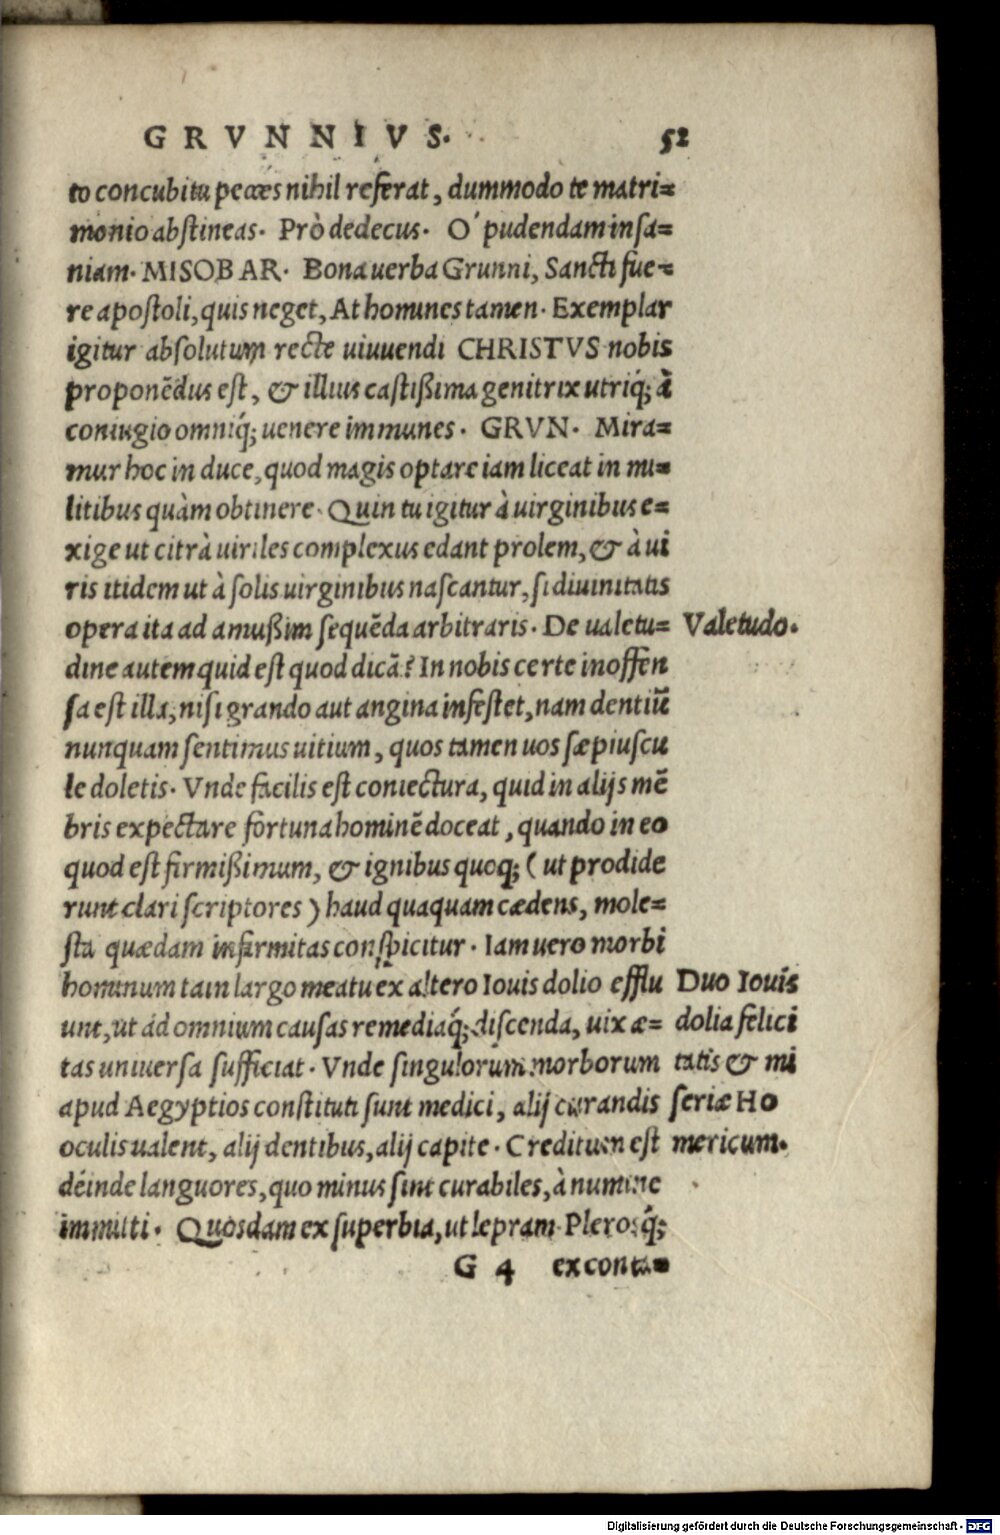 GRVNNIVS. 52
to concubitu pecces nihil referat, dummodo te matri=
monio abstineas. Prò dedecus. O' pudendam insa=
niam. MISOBAR. Bona uerba Grunni, Sancti fue=
re apostoli, quis neget, At homines tamen. Exemplar
igitur absolutum recte uiuuendi CHRISTVS nobis
proponẽdus est, & illius castißima genitrix utriq́; à
coniugio omniq́; uenere immunes. GRVN. Mira=
mur hoc in duce, quod magis optare iam liceat in mi=
litibus quàm obtinere. Quin tu igitur à uirginibus e=
xige ut citrà uiriles complexus edant prolem, & à ui
ris itidem ut à solis uirginibus nascantur, si diuinitatis
opera ita ad amußim sequẽda arbitraris. De ualetu=
dine autem quid est quod dicã? In nobis certe inoffen
sa est illa, nisi grando aut angina infestet, nam dentiũ
nunquam sentimus uitium, quos tamen uos sæpiuscu
le doletis. Vnde facilis est coniectura, quid in alijs mẽ
bris expectare fortuna hominẽ doceat, quando in eo
quod est firmißimum, & ignibus quoq; ( ut prodide
runt clari scriptores ) haud quaquam cædens, mole=
sta quædam infirmitas conspicitur. Iam uero morbi
hominum tam largo meatu ex altero Iouis dolio efflu
unt, ut ad omnium causas remediaq́; discenda, uix æ=
tas uniuersa sufficiat. Vnde singulorum morborum
apud Aegyptios constituti sunt medici, alij curandis
oculis ualent, alij dentibus, alij capite. Creditum est
déinde languores, quo minus sint curabiles, à numine
immitti. Quosdam ex superbia, ut lepram. Plerosq́;
G 4 ex conta=
Valetudo.
Duo Iouis
dolia felici
tatis & mi
seriæ Ho
mericum.
Digitalisierung gefördert durch die Deutsche Forschungsgemeinschaft - DFG